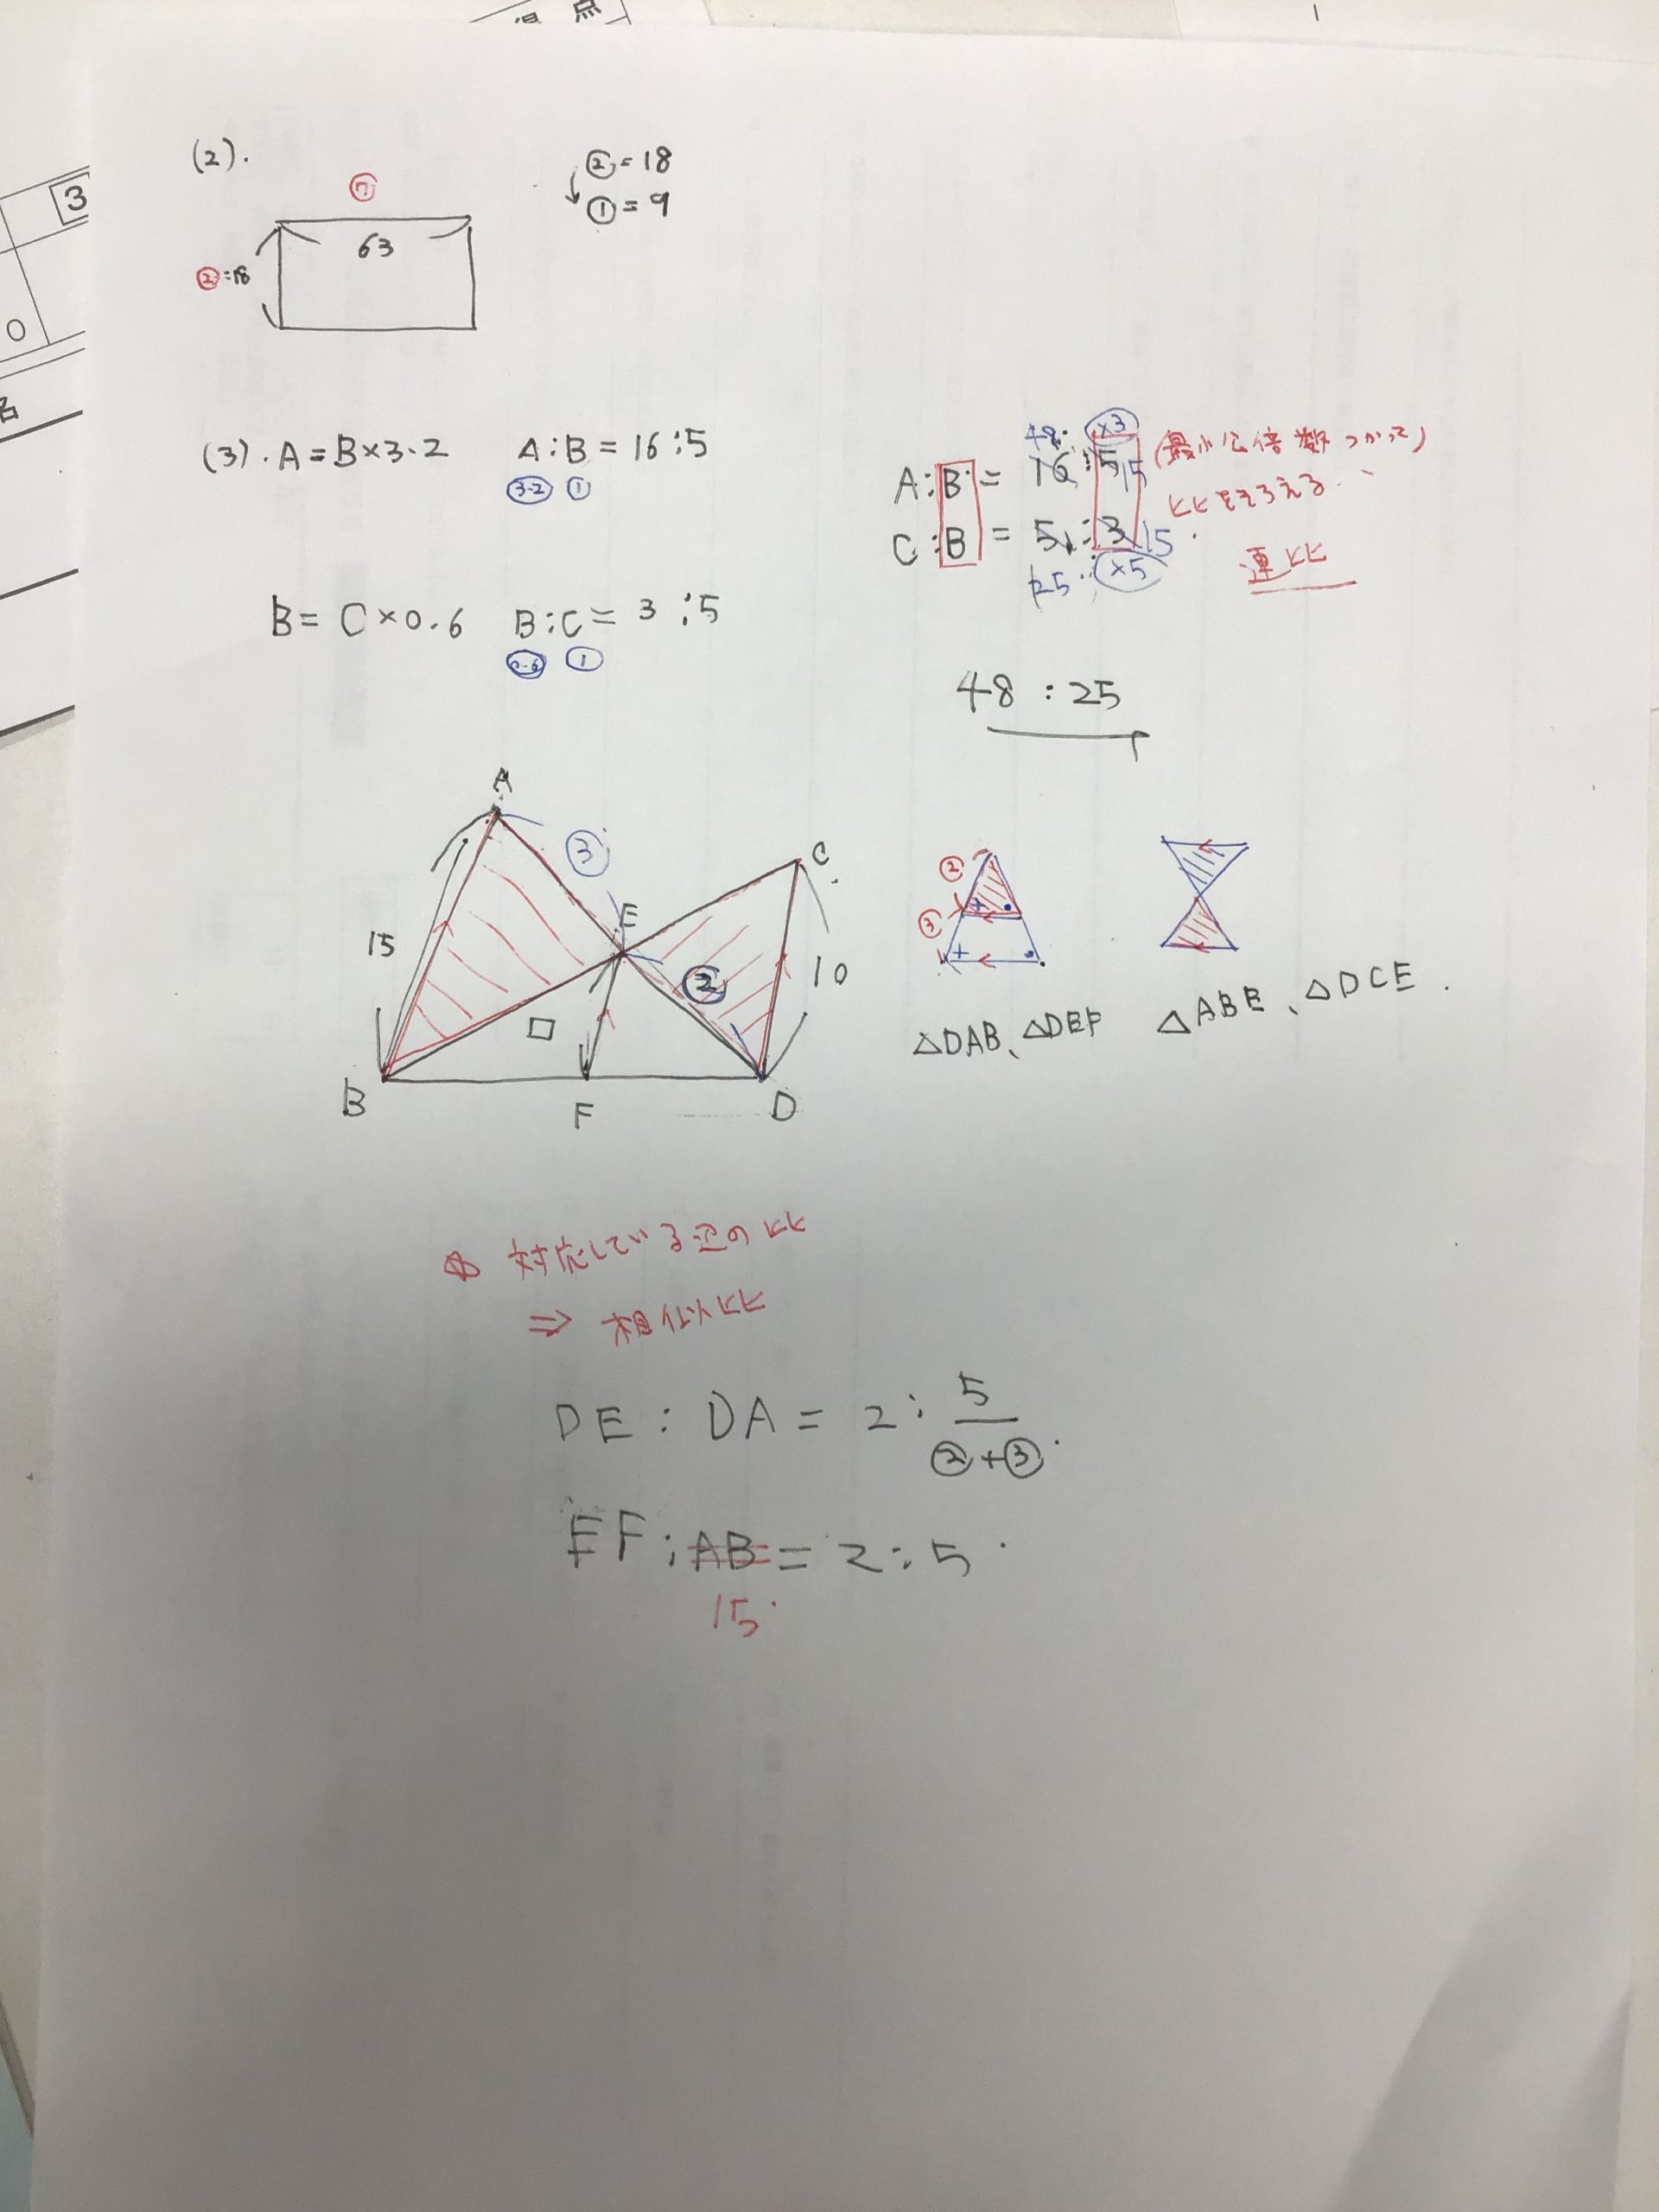 点
3
0
名
(2).
⑦
②=18
①=9
63
②=18
(3). A=B×3.2 A:B=16:5
3.2 ①
48: ×3
A:B=16:5 15
(最小公倍数つかって)
比をそろえる
C:B=5:3 15
25 ×5
連比
B=C×0.6 B:C=3:5
0.6 ①
48:25
A
③
C
E
15
②
10
□
B
F
D
②
③
△DAB、△DEF
△ABE、△DCE.
対応している辺の比
⇒ 相似比
DE:DA=2:5
②+③.
EF:AB=2:5.
15.